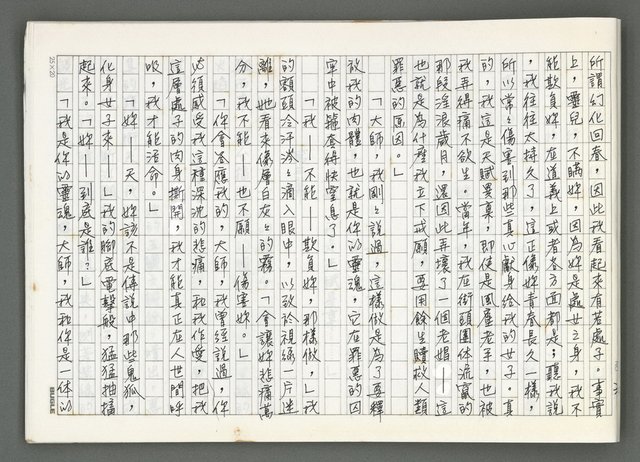 所謂幻化回春，因此我看起來有若處子。事實
上，靈兒，不瞞妳，因為妳是處女之身，我不
能欺負妳，在道義上或者各方面都是；聽我說
，我往往太持久了，這正像妳青春長久一樣，
所以常々傷害到那些真心獻身給我的女子。真
的，我這是天賦異稟，即使是風塵老手，也被
我弄得痛不欲生。當年，我在街頭團体混贏的
那段淫浪歲月，還因此弄壞了一個老娼——這
也就是為什麼我立下戒願，要用餘生贖救人類
罪惡的原因。」
「大師，我剛々說過，這樣做是為了要釋
放我的肉体，也就是你的靈魂，它在罪惡的囚
牢中被撞套得快窒息了。」
「我——不能——欺負妳，那樣做，」我
的額頭冷汗涔々滴入眼中，以致於視綫一片迷
離，她看來像層白灰々的霧。「會讓妳悲痛萬
分，我不能——也不願——傷害妳。」
「你會答應我的，大師，我曾經說過，你
必須感受我這種深沈的悲痛，和我作愛，把我
這層處子的肉身撕開，我才能真正在人世間呼
吸，我才能活命。」
「妳——天，妳該不是傳說中那些鬼狐，
化身女子來——」我的腳底電擊般，猛猛抽搐
起來。「妳——到底是誰？」
「我是你的靈魂，大師，我和你是一体的
25×20
BUGLE